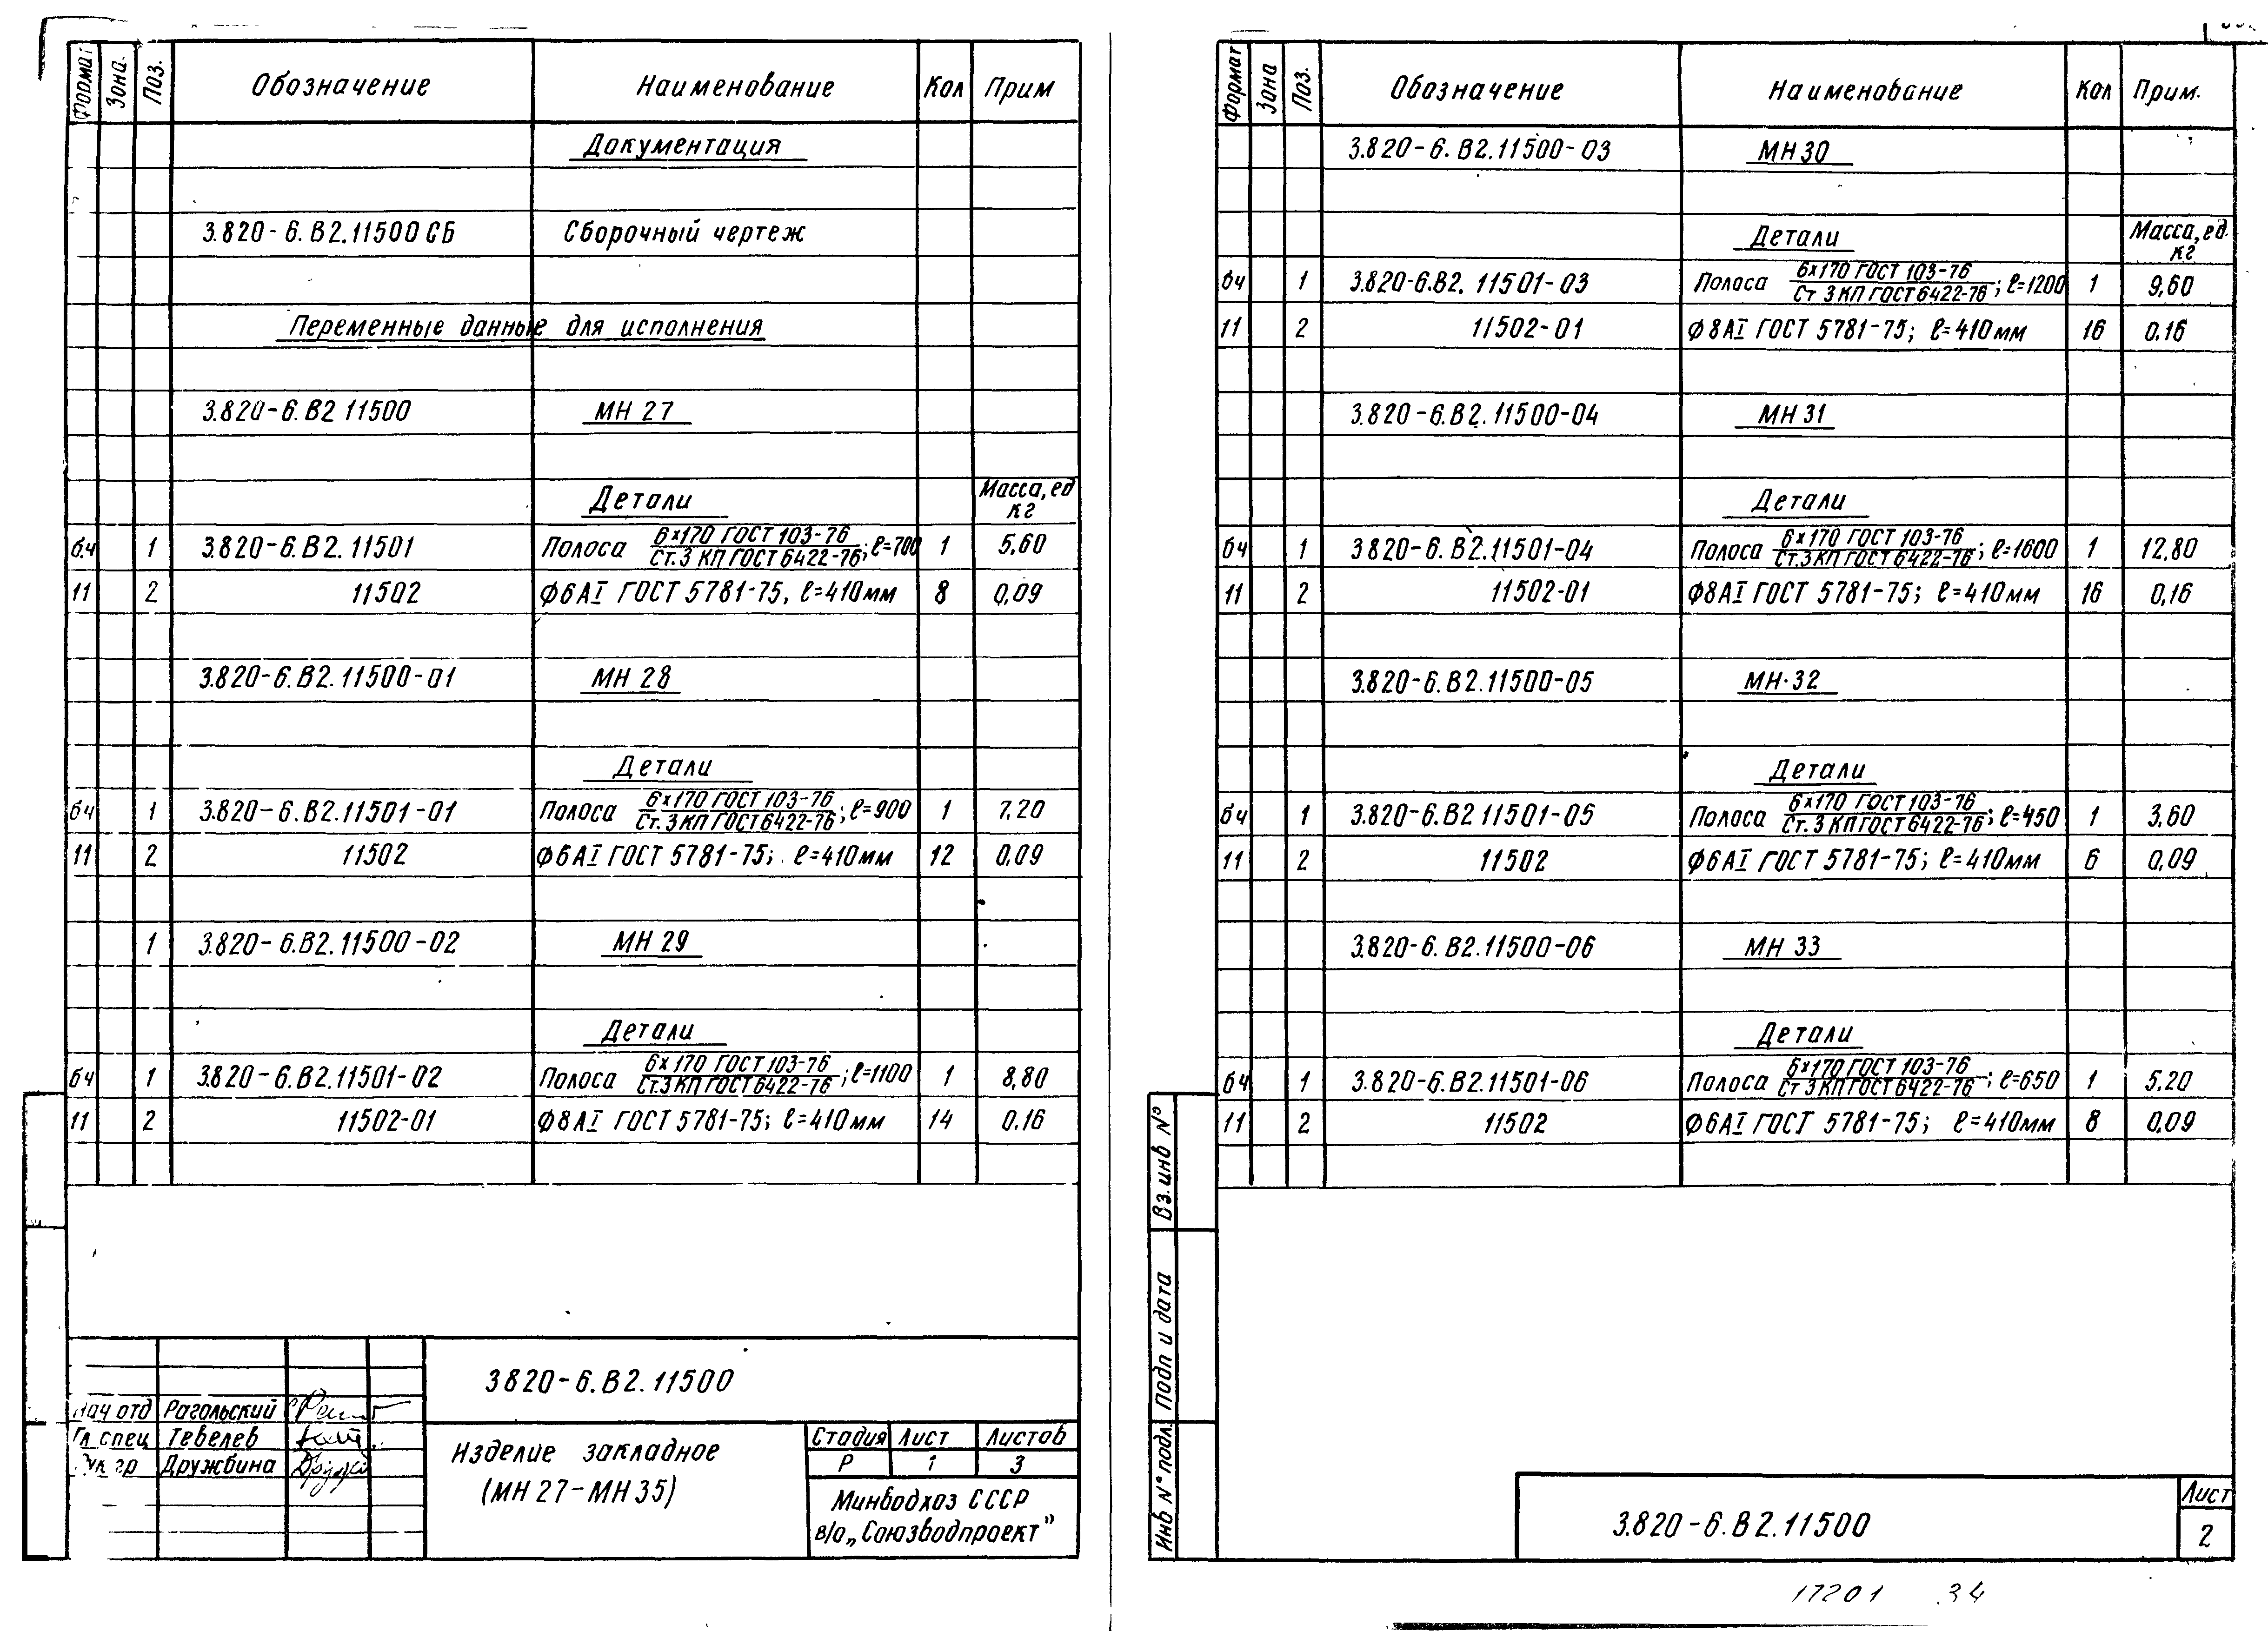 Формат Зона. Поз. Обозначение Наименование Кол Прим
Документация
3.820-6.В2.11500 СБ Сборочный чертеж
Переменные данные для исполнения
3.820-6.В2 11500 МН 27
Детали Масса, ед кг
б.ч 1 3.820-6.В2.11501 Полоса 6×170 ГОСТ 103-76 / Ст.3 КП ГОСТ 6422-76; ℓ=700 1 5,60
11 2 11502 Ф6АI ГОСТ 5781-75, ℓ=410мм 8 0,09
3.820-6.В2.11500-01 МН 28
Детали
бч 1 3.820-6.В2.11501-01 Полоса 6×170 ГОСТ 103-76 / Ст.3 КП ГОСТ 6422-76; ℓ=900 1 7,20
11 2 11502 Ф6АI ГОСТ 5781-75; ℓ=410мм 12 0,09
1 3.820-6.В2.11500-02 МН 29
Детали
бч 1 3.820-6.В2.11501-02 Полоса 6×170 ГОСТ 103-76 / Ст.3 КП ГОСТ 6422-76; ℓ=1100 1 8,80
11 2 11502-01 Ф8АI ГОСТ 5781-75; ℓ=410мм 14 0.16
3820-6.В2.11500
Нач отд Рагольский
Гл спец Тевелев
Рук гр Дружбина
Изделие закладное
(МН 27-МН 35)
Стадия Лист Листов
Р 1 3
Минводхоз СССР
в/о „Союзводпроект"
Формат Зона Поз. Обозначение Наименование Кол Прим.
3.820-6.В2.11500-03 МН 30
Детали Масса, ед. кг
бч 1 3.820-6.В2. 11501-03 Полоса 6×170 ГОСТ 103-76 / Ст 3 КП ГОСТ 6422-76; ℓ=1200 1 9,60
11 2 11502-01 Ф8АI ГОСТ 5781-75; ℓ=410мм 16 0.16
3.820-6.В2.11500-04 МН 31
Детали
бч 1 3 820-6.В2.11501-04 Полоса 6×170 ГОСТ 103-76 / Ст.3 КП ГОСТ 6422-76; ℓ=1600 1 12,80
11 2 11502-01 Ф8АI ГОСТ 5781-75; ℓ=410мм 16 0,16
3.820-6.В2.11500-05 МН·32
Детали
бч 1 3.820-6.В2 11501-05 Полоса 6×170 ГОСТ 103-76 / Ст.3 КП ГОСТ 6422-76; ℓ=450 1 3,60
11 2 11502 Ф6АI ГОСТ 5781-75; ℓ=410мм 6 0,09
3.820-6.В2.11500-06 МН 33
Детали
бч 1 3.820-6.В2.11501-06 Полоса 6×170 ГОСТ 103-76 / Ст 3 КП ГОСТ 6422-76; ℓ=650 1 5.20
11 2 11502 Ф6АI ГОСТ 5781-75; ℓ=410мм 8 0,09
Вз.инв №
Подп и дата
Инв № подл.
3.820-6.В2.11500
Лист
2
17201 34